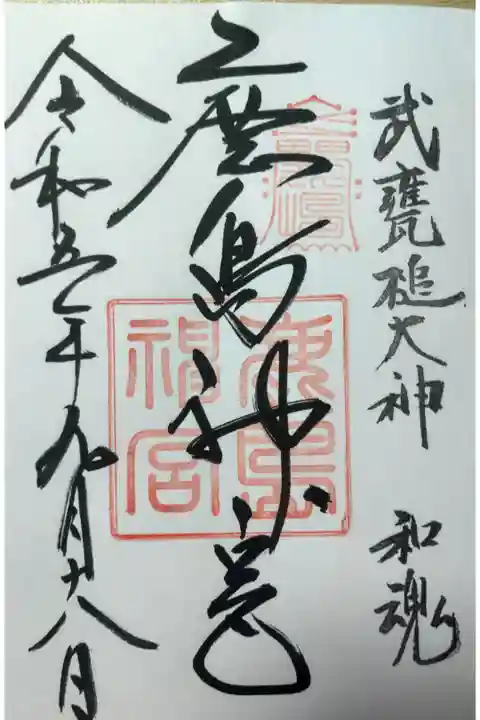 武甕槌大神 和魂
鹿島神宮
鹿島
神宮
令和五年九月十八日